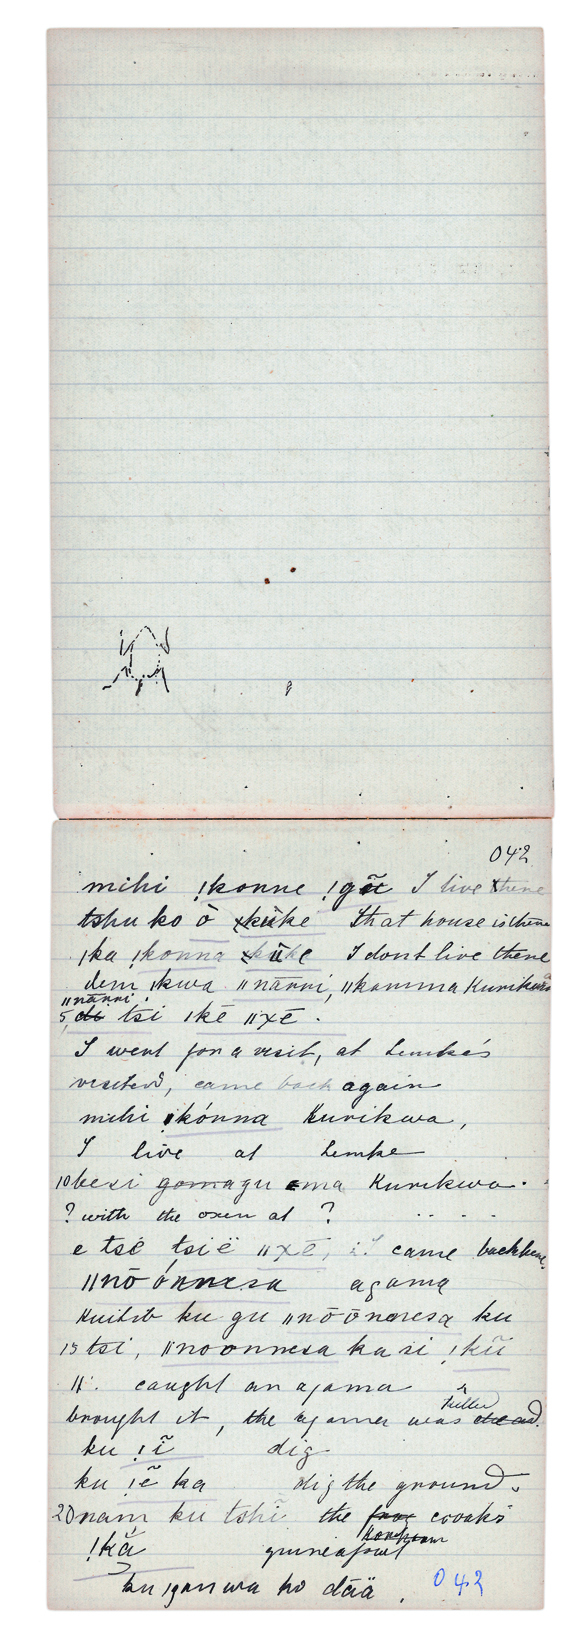 042
mihi ǃkonne ǃgũ I live there
tshu ko ò kũke That house is there
ǀka ǀkonna kũke I dont live there
dem ǀkwa ǁnãrri, ǁkamma Kurikwa
ǁnãrri
5, tsi ǀkē ǁxē.
I went for a visit, at Lemke's
visited, came back again
mihi ǀkónna Kurikwa,
I live at Lemke
10 besi gomagu ma Kurikwa.
? with the oxen at ? . . . .
e tsē tsië ǁxē, I came back here,
ǁnō ónnesa agama
ku gu ǁnōōnesa ku
15 tsi, ǁnoonnesa ka si ǃkũ
H. caught an agama
killed
brought it, the agama was dead.
ku ǃĩ dig
ku ǃẽ ka dig the ground.
20 nam ku tshĩ the frog croaks
ǃkã guineafowl
ku ǀgan wa ho dãä. 042